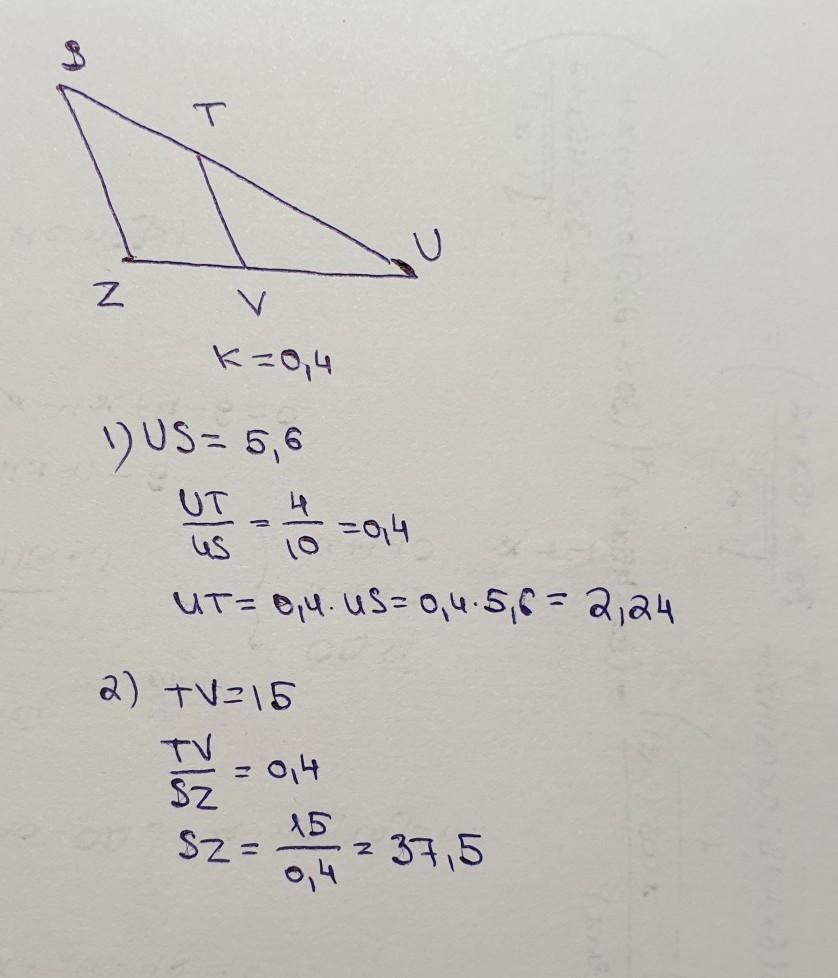 S
T
U
Z V
K = 0,4
1) US = 5,6
UT/US = 4/10 = 0,4
UT = 0,4 · US = 0,4 · 5,6 = 2,24
2) TV = 15
TV/SZ = 0,4
SZ = 15/0,4 = 37,5